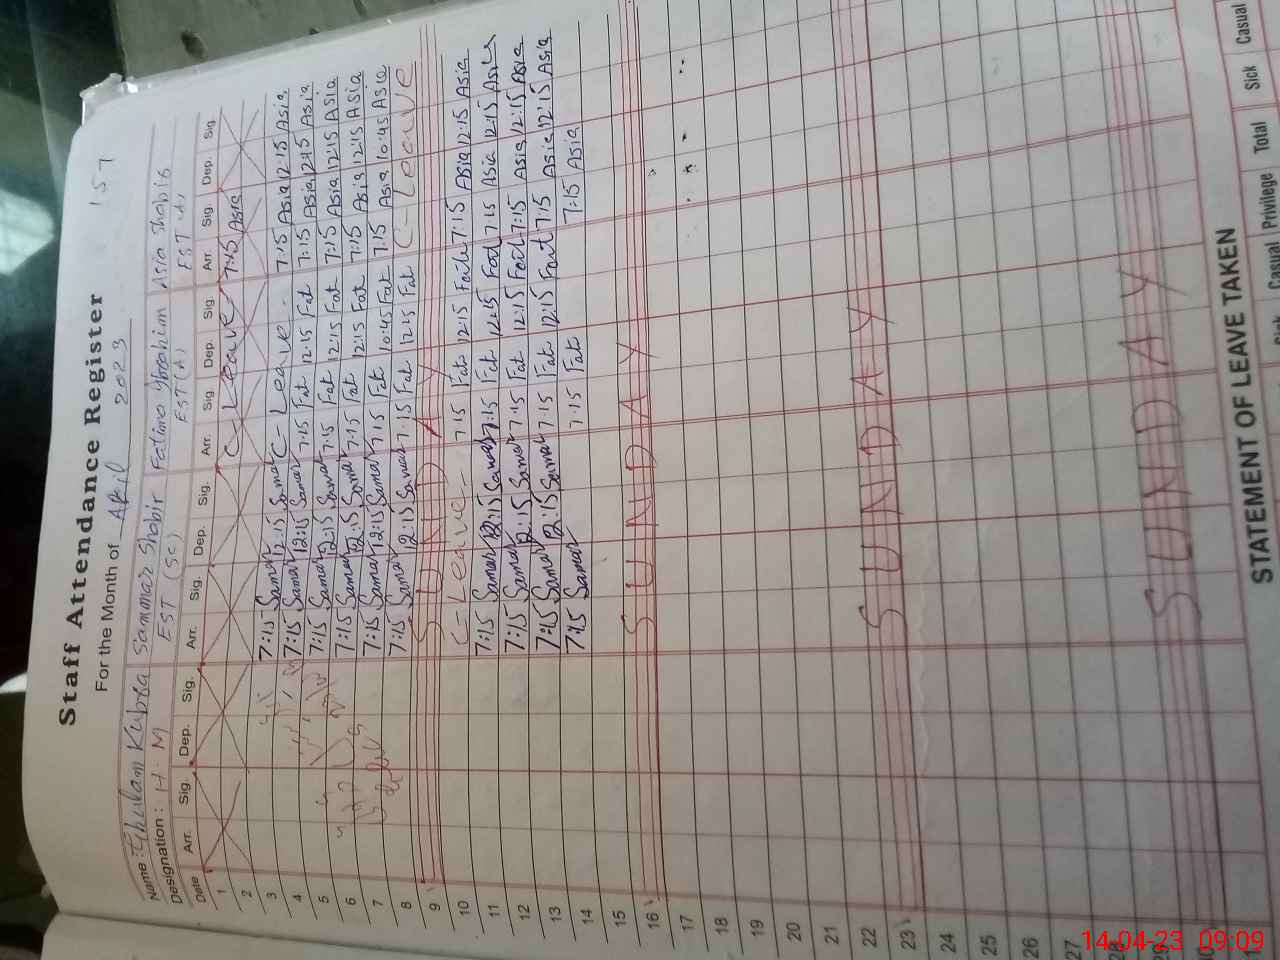 Staff Attendance Register
For the Month of April 2023 157
Name: Ghulam Kubra Sammar Shabir Fatima Ibrahim Asia Shabir
Designation: H.M EST (Sc) EST(A) EST(A)
Date Arr. Sig. Dep. Sig. Arr. Sig. Dep. Sig. Arr. Sig Dep. Sig. Arr. Sig. Dep. Sig.
1 C-Leave 7:15 Asia
2
3 7:15 Samar 12:15 Samar C-Leave 7:15 Asia 12:15 Asia
4 7:15 Samar 12:15 Samar 7:15 Fat 12:15 Fat 7:15 Asia 1215 Asia
5 7:15 Samar 12:15 Samar 7:15 Fat 12:15 Fat 7:15 Asia 12:15 Asia
6 7:15 Samar 12:15 Samar 7:15 Fat 12:15 Fat 7:15 Asia 12:15 Asia
7 7:15 Samar 12:15 Samar 7:15 Fat 10:45 Fat 7:15 Asia 10:45 Asia
8 7:15 Samar 12:15 Samar 7:15 Fat 12:15 Fat C-Leave
9 SUNDAY
10 C-Leave- 7:15 Fat 12:15 7:15 Asia 12:15 Asia
11 7:15 Samar 12:15 Samar 7:15 Fat 12:15 7:15 Asia 12:15 Asia
12 7:15 Samar 12:15 Samar 7:15 Fat 12:15 7:15 Asia 12:15 Asia
13 7:15 Samar 12:15 Samar 7:15 Fat 12:15 7:15 Asia 12:15 Asia
14 7:15 Samar 7:15 Fat 7:15 Asia
15
16 SUNDAY
17
18
19
20
21
22
23 SUNDAY
24
25
26
27
28
29
30 SUNDAY
STATEMENT OF LEAVE TAKEN
Casual Privilege Total Sick Casual
14-04-23 09:09